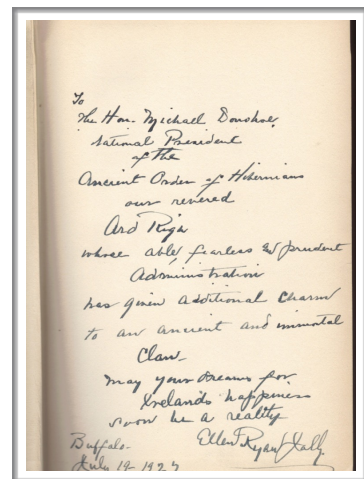 To
The Hon. Michael Donohoe
National President
of the
Ancient Order of Hibernians
our revered
Ard Righ
whose able, fearless and prudent
Administration
has given additional charm
to an ancient and immortal
Clan-
May your dreams for
Ireland's happiness
soon be a reality
Ellen Ryan Jolly
Buffalo-
July 19-1927